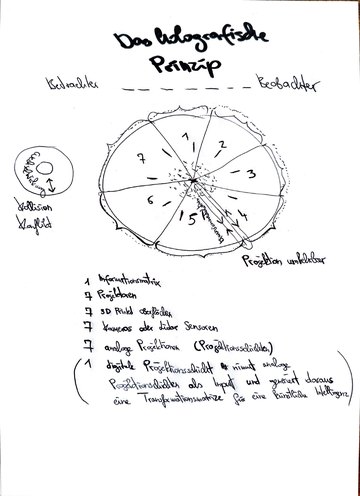 Das holografische
Prinzip
Betrachter — — — — — — Beobachter
1
2
3
4
5
6
7
Kollision
Projektion umkehrbar
1 Informationsmatrix
7 Projektoren
7 3D Objekt Oberflächen
7 Kameras oder Lidar Sensoren
7 analoge Projektionen (Projektionsschichten)
1 digitale Projektionsschicht nimmt analoge
Projektionsschichten als Input und generiert daraus
eine Transformationsmatrize für eine künstliche Intelligenz